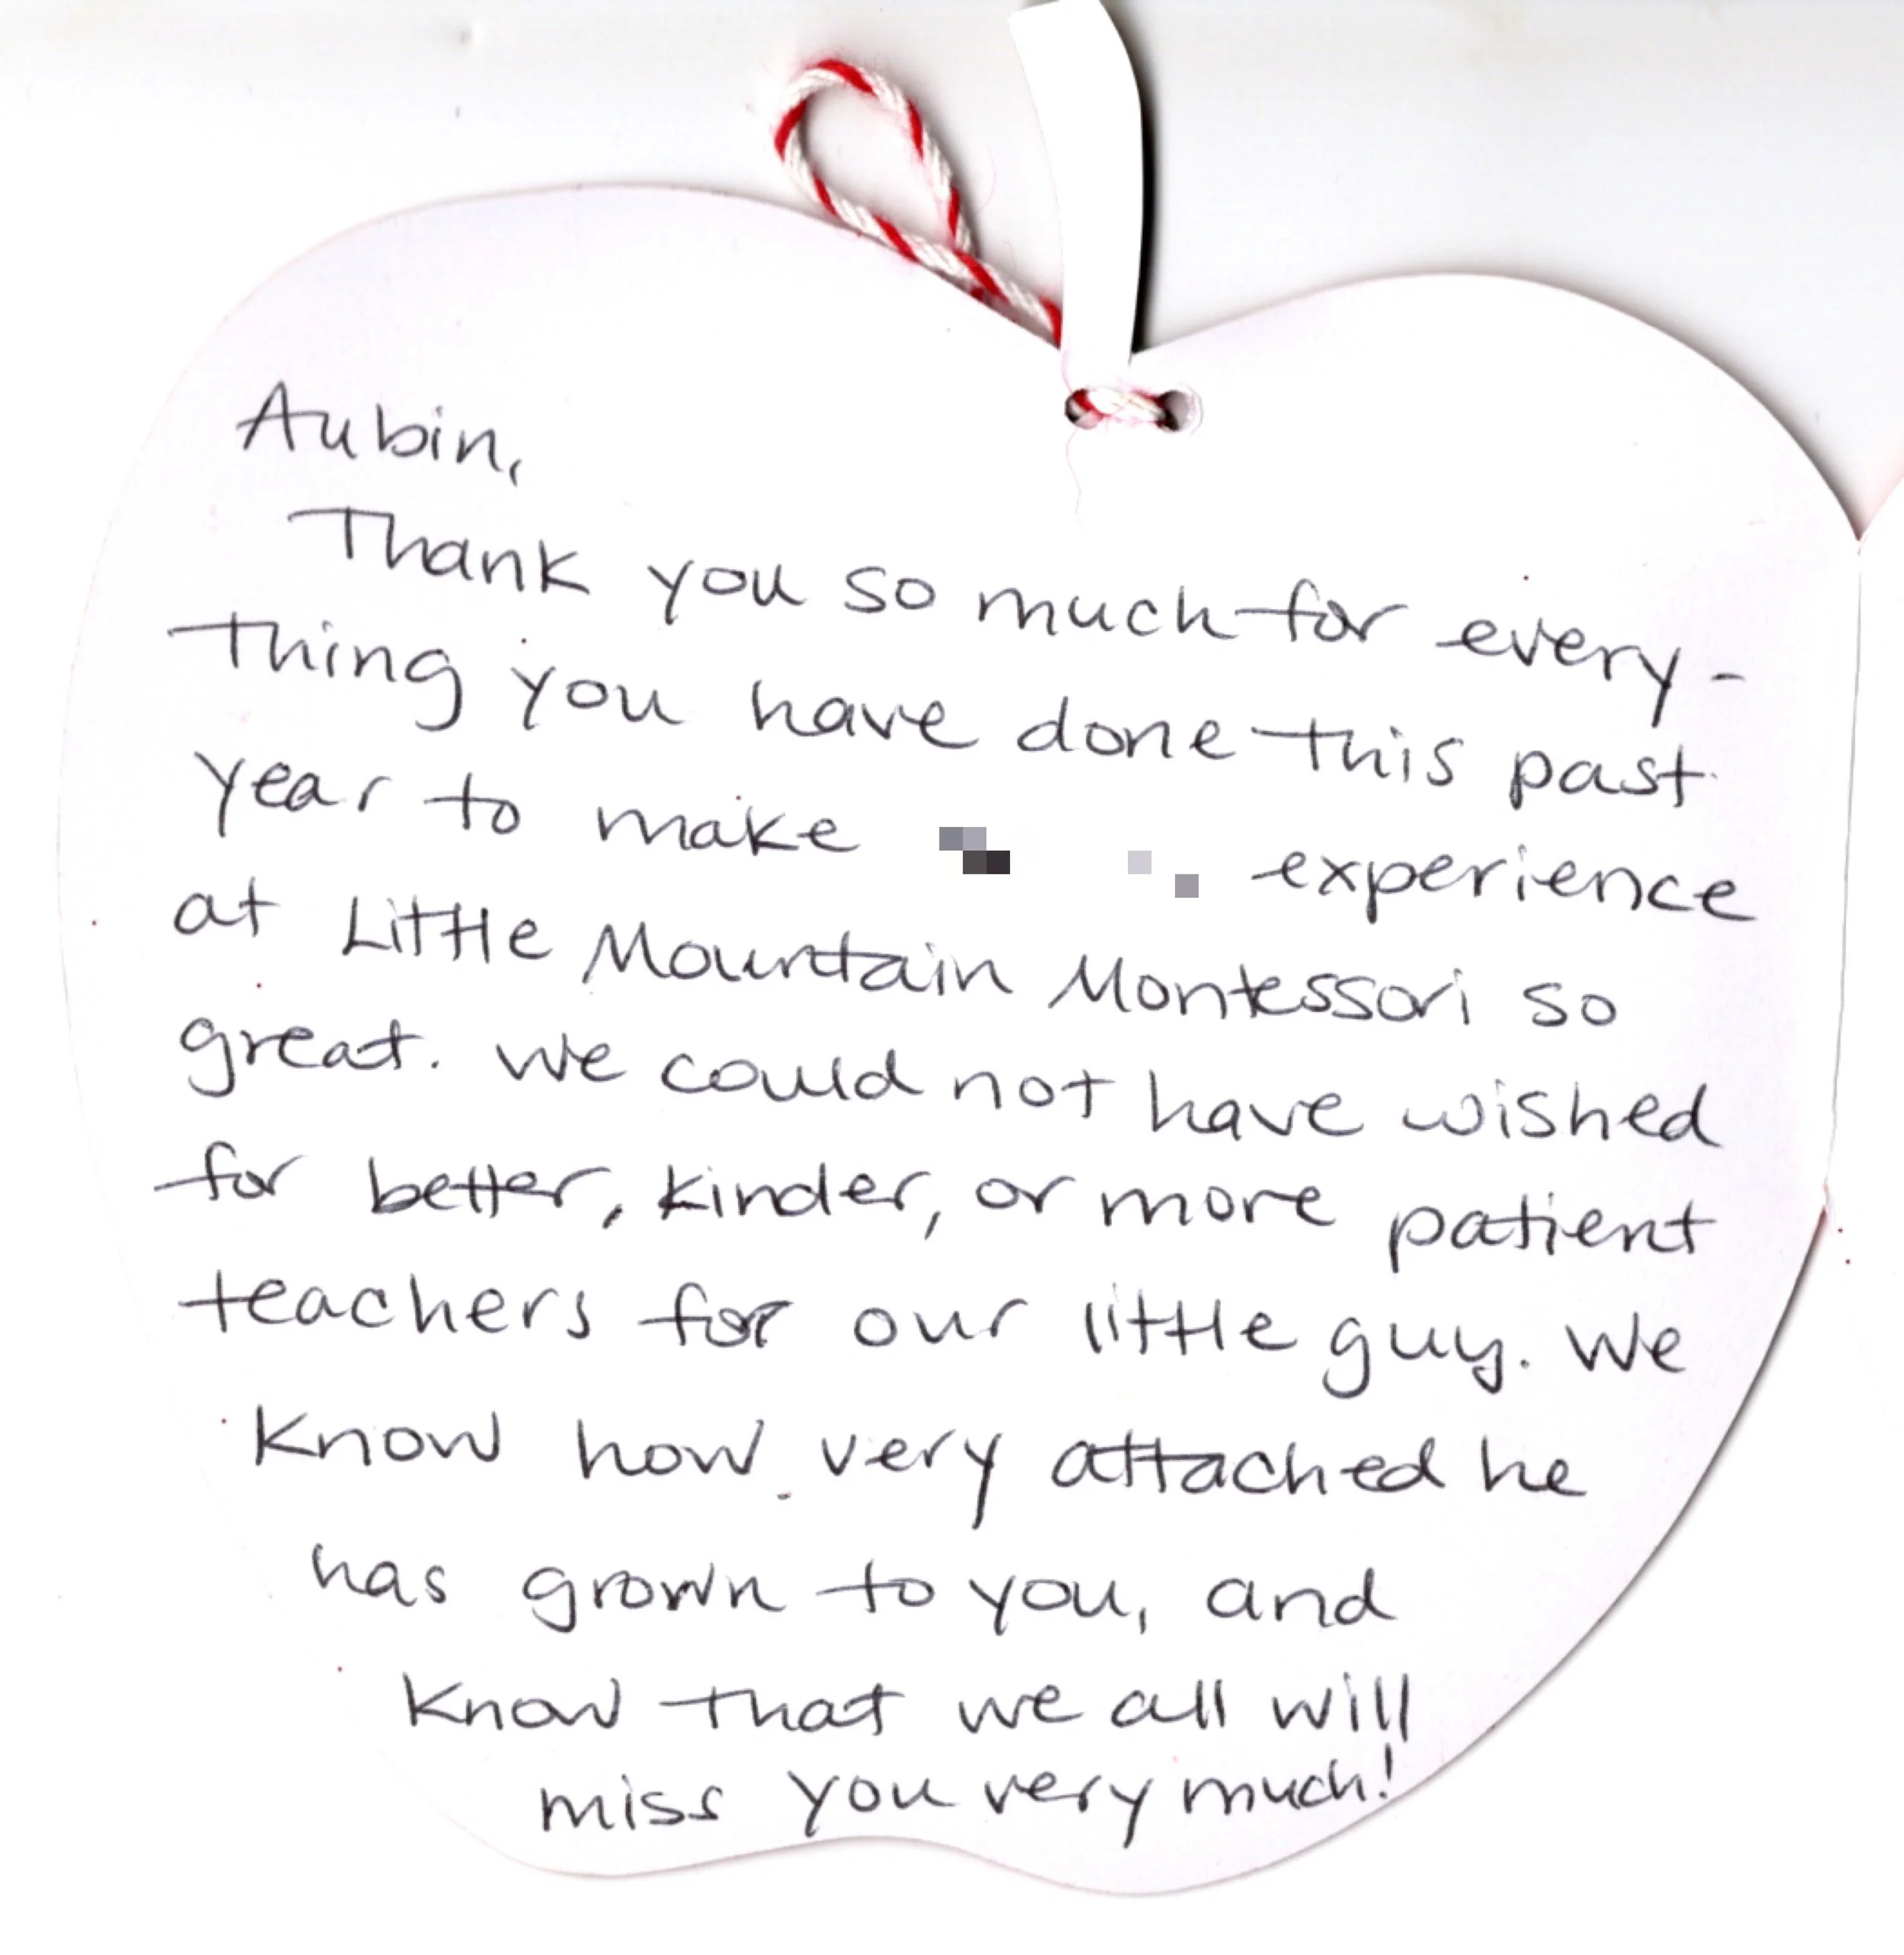 Aubin,
Thank you so much for every-
thing you have done this past
year to make experience
at Little Mountain Montessori so
great. We could not have wished
for better, kinder, or more patient
teachers for our little guy. We
know how very attached he
has grown to you, and
know that we all will
miss you very much!